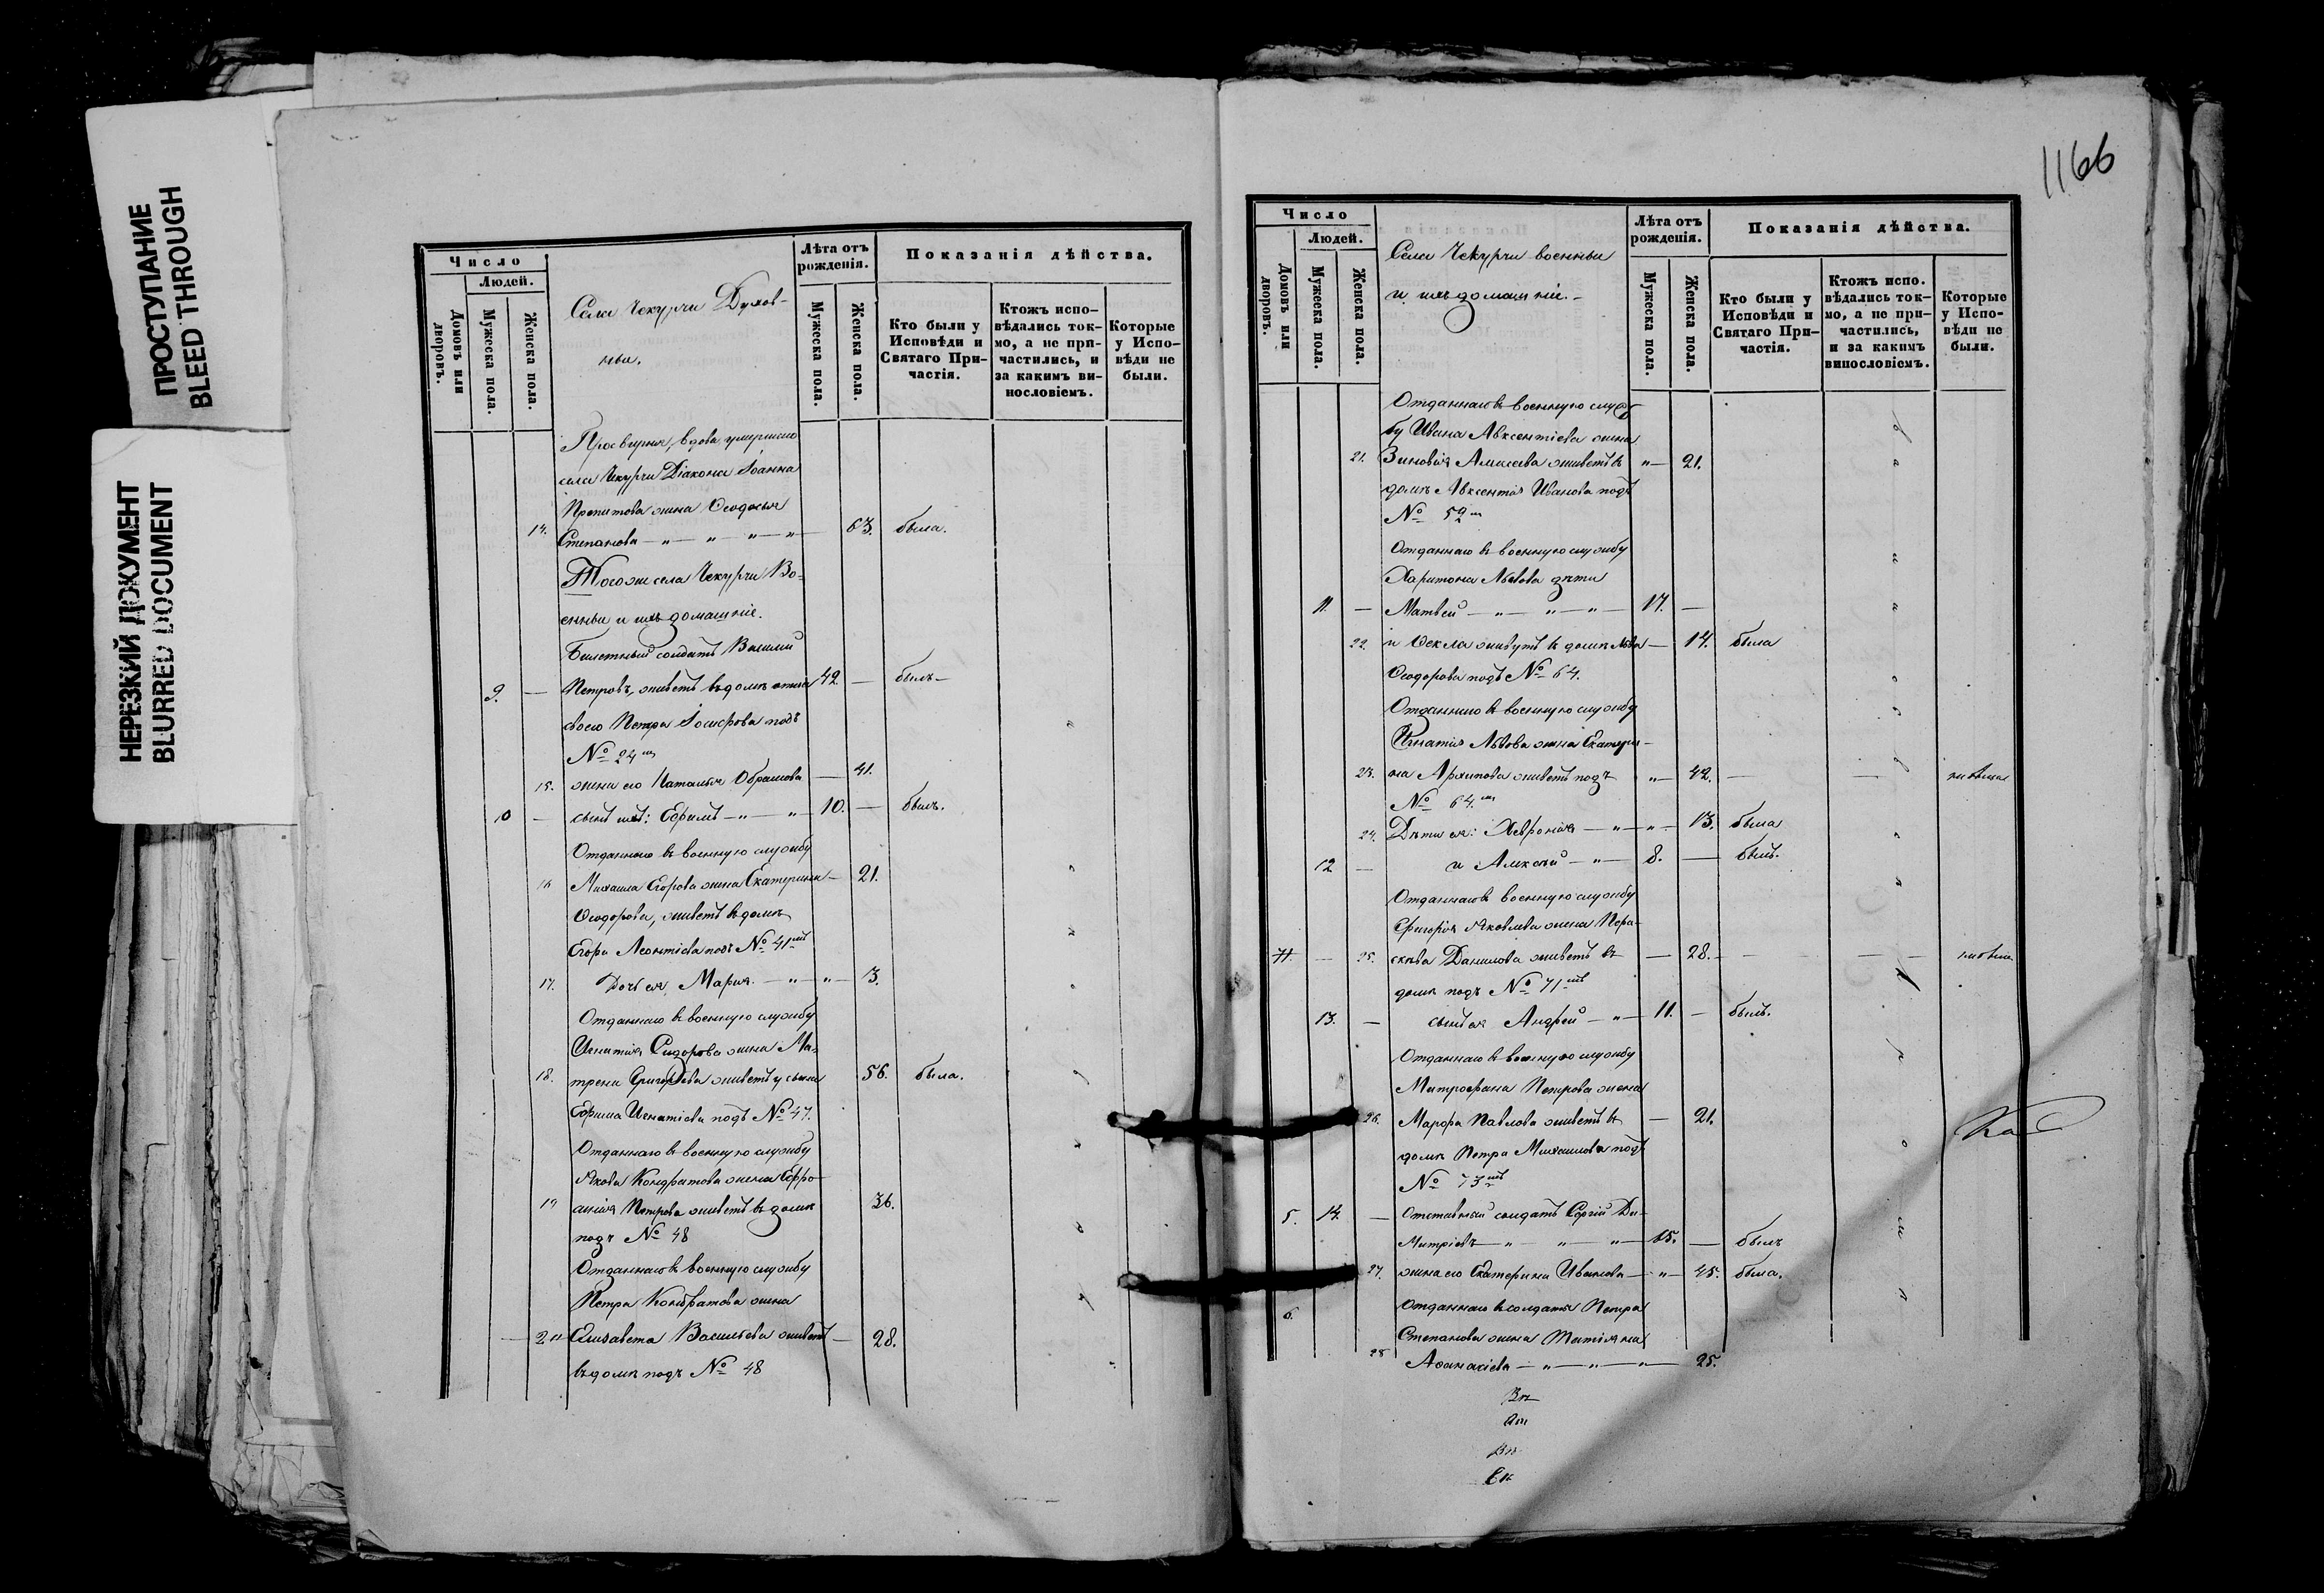 ПРОСТУПАНИЕ
BLEED THROUGH
НЕРЕЗКИЙ ДОКУМЕНТ
BLURRED DOCUMENT
Число
Людей.
Домовъ или дворовъ.
Мужеска пола.
Женска пола.
Села Чекурчи Духов-
ныи.
Лѣта отъ рожденія.
Мужеска пола.
Женска пола.
Показанія дѣйства.
Кто были у Исповѣди и Святаго При-частія.
Ктожъ испо-вѣдались ток-мо, а не при-частились, и за какимъ ви-нословіемъ.
Которые у Испо-вѣди не были.
Просвирня, вдова умершаго
села Чекурчи Діакона Іоанна
жена Ѳеодосья
14. Степанова — „ — „ — „ — „ — 63. была.
Того же села Чекурчи Во-
енныи и ихъ домашніе.
Билетный солдатъ Василий
9. — Петровъ, живетъ въ домѣ отца 42. — былъ —
своего Петра Іосифова подъ
№ 24 мъ
15. жена его Наталья Абрамова — 41.
10 — сынъ ихъ: Ефимъ — „ — „ — 10. — былъ.
Отданнаго въ военную службу
16 Михаила Егорова жена Екатерина — 21.
Ѳеодорова, живетъ въ домѣ
Егора Леонтіева подъ № 41 мъ
17. Дочь ея Марія. — „ — „ — 3.
Отданнаго въ военную службу
Игнатія Сидорова жена Ма-
18. трена Григорьева живетъ у сына 56. была.
Ефима Игнатіева подъ № 47.
Отданнаго въ военную службу
Якова Кондратова жена Евфро-
19 синія Петрова живетъ въ домѣ 36.
подъ № 48
Отданнаго въ военную службу
Петра Кондратова жена
— 20 Елизавета Васильева живетъ — 28.
въ домѣ подъ № 48
1166
Число
Людей.
Домовъ или дворовъ.
Мужеска пола.
Женска пола.
Села Чекурчи военныи
и ихъ домашніе. —
Лѣта отъ рожденія.
Мужеска пола.
Женска пола.
Показанія дѣйства.
Кто были у Исповѣди и Святаго При-частія.
Ктожъ испо. вѣдались ток-мо, а не при-частились, и за какимъ винословіемъ.
Которые у Испо-вѣди не были.
Отданнаго въ военную служ
бу Ивана Авксентіева жена
21. Зиновія Алексеева живетъ въ „ — 21.
домѣ Авксентія Иванова подъ
№ 52 мъ
Отданнаго въ военную службу
Харитона Львова дѣти
11. — Матвей — „ — „ — „ — 17. —
22. и Ѳекла живутъ въ домѣ Льва — 14. была
Ѳеодорова подъ № 64.
Отданнаго въ военную службу
Игнатія Львова жена Екатери-
23. на Архипова живетъ подъ „ — 42. — — не была
№ 64. мъ
24. Дѣти ея: Хеврония — „ — „ — 13. была
12 — и Алексей — „ — 8. — былъ.
Отданнаго въ военную службу
Григорія Яковлева жена Пора-
— 25. скева Данилова живетъ въ — 28. — — — не была
домѣ подъ № 71 мъ
13. — сынъ ея Андрей — „ — 11. — былъ.
Отданнаго въ военную службу
Митрофана Петрова жена
26. Марфа Павлова живетъ въ — 21.
домѣ Петра Михаилова подъ
№ 73 мъ
5. 14. — Отставный солдатъ Сергій Ди-
митріевъ — „ — „ — „ — 65. — былъ
27. жена его Екатерина Иванова — „ — 45. была.
6. Отданнаго въ солдаты Петра
Степанова жена Татіяна
28 Аѳанасіева — „ — „ — „ — 25.
Ка